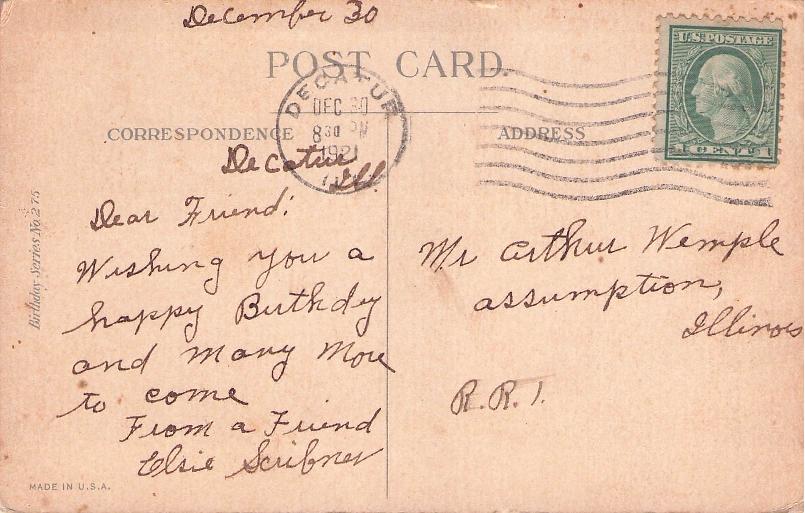 December 30
POST CARD.
DECATUR
DEC 30
8 30 PM
1921
ILL.
U.S. POSTAGE
1 CENT 1
CORRESPONDENCE
ADDRESS
Decatur
Ill.
Dear Friend:
Wishing you a
happy Birthday
and many more
to come
From a Friend
Elsie Scribner
Mr Arthur Wemple
assumption,
Illinois
R.R. 1.
Birthday Series No. 275
MADE IN U.S.A.